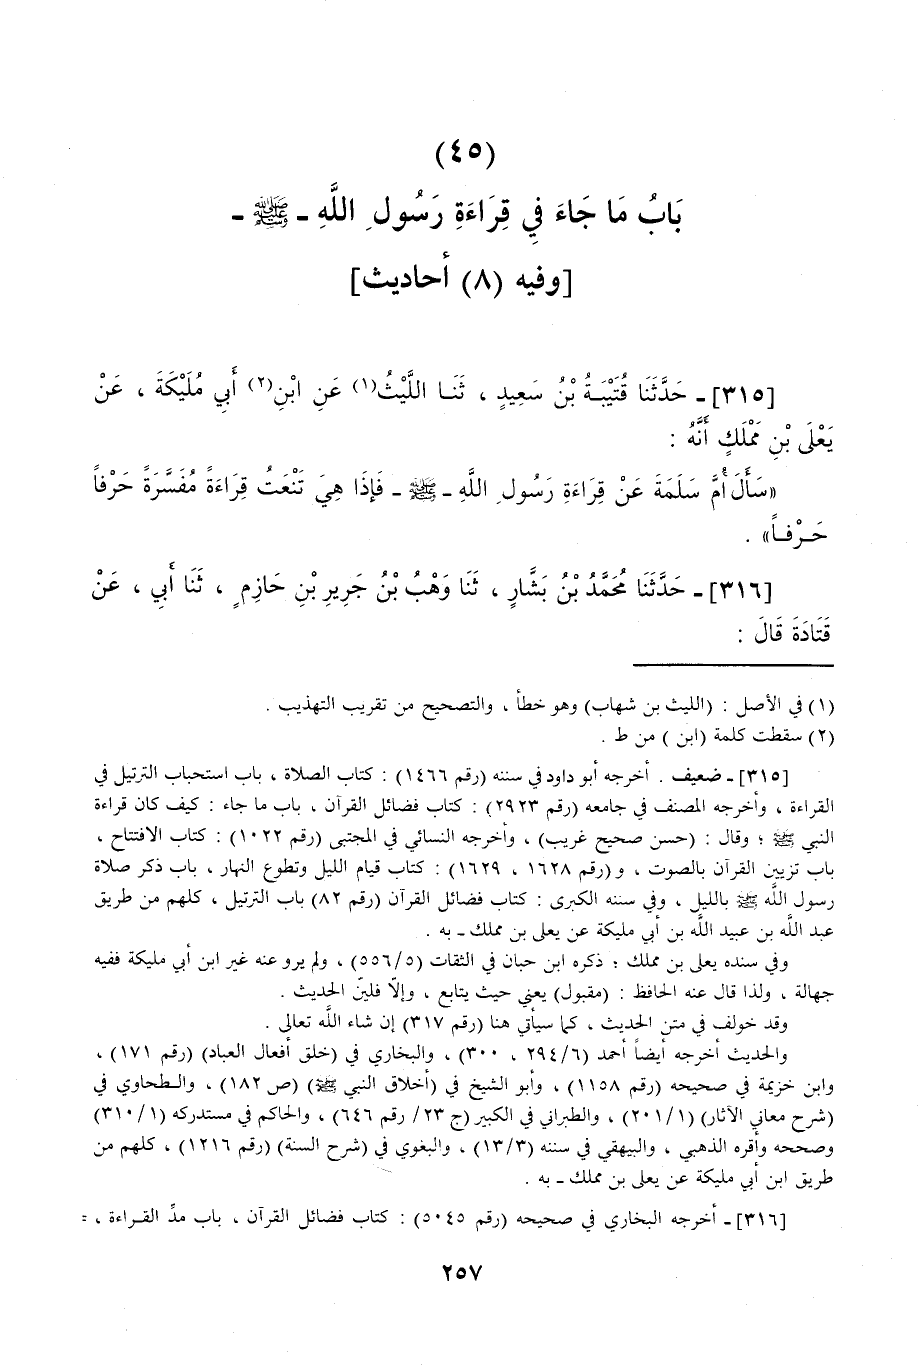 (٤٥)
بَابُ مَا جَاءَ فِي قِرَاءَةِ رَسُولِ اللَّهِ - ﷺ -
[وفيه (٨) أحاديث]
[٣١٥] - حَدَّثَنَا قُتَيْبَةُ بْنُ سَعِيدٍ ، ثَنَا اللَّيْثُ(١) عَنِ ابْنِ(٢) أَبِي مُلَيْكَةَ ، عَنْ
يَعْلَى بْنِ مَمْلَكٍ أَنَّهُ :
«سَأَلَ أُمَّ سَلَمَةَ عَنْ قِرَاءَةِ رَسُولِ اللَّهِ - ﷺ - فَإِذَا هِيَ تَنْعَتُ قِرَاءَةً مُفَسَّرَةً حَرْفاً
حَرْفاً» .
[٣١٦] - حَدَّثَنَا مُحَمَّدُ بْنُ بَشَّارٍ ، ثَنَا وَهْبُ بْنُ جَرِيرِ بْنِ حَازِمٍ ، ثَنَا أَبِي ، عَنْ
قَتَادَةَ قَالَ :
(١) في الأصل : (الليث بن شهاب) وهو خطأ ، والتصحيح من تقريب التهذيب .
(٢) سقطت كلمة (ابن ) من ط .
[٣١٥] - ضعيف . أخرجه أبو داود في سننه (رقم ١٤٦٦) : كتاب الصلاة ، باب استحباب الترتيل في
القراءة ، وأخرجه المصنف في جامعه (رقم ٢٩٢٣) : كتاب فضائل القرآن ، باب ما جاء : كيف كان قراءة
النبي ﷺ ؛ وقال : (حسن صحيح غريب) ، وأخرجه النسائي في المجتبى (رقم ١٠٢٢) : كتاب الافتتاح ،
باب تزيين القرآن بالصوت ، و(رقم ١٦٢٨ ، ١٦٢٩) : كتاب قيام الليل وتطوع النهار ، باب ذكر صلاة
رسول اللَّه ﷺ بالليل ، وفي سننه الكبرى : كتاب فضائل القرآن (رقم ٨٢) باب الترتيل ، كلهم من طريق
عبد اللَّه بن عبيد اللَّه بن أبي مليكة عن يعلى بن مملك - به .
وفي سنده يعلى بن مملك ؛ ذكره ابن حبان في الثقات (٥٥٦/٥) ، ولم يرو عنه غير ابن أبي مليكة ففيه
جهالة ، ولذا قال عنه الحافظ : (مقبول) يعني حيث يتابع ، وإلّا فليّن الحديث .
وقد خولف في متن الحديث ، كما سيأتي هنا (رقم ٣١٧) إن شاء اللَّه تعالى .
والحديث أخرجه أيضاً أحمد (٢٩٤/٦ ، ٣٠٠) ، والبخاري في (خلق أفعال العباد) (رقم ١٧١) ،
وابن خزيمة في صحيحه (رقم ١١٥٨) ، وأبو الشيخ في (أخلاق النبي ﷺ) (ص ١٨٢) ، والطحاوي في
(شرح معاني الآثار) (٢٠١/١) ، والطبراني في الكبير (ج ٢٣/ رقم ٦٤٦) ، والحاكم في مستدركه (٣١٠/١)
وصححه وأقره الذهبي ، والبيهقي في سننه (١٣/٣) ، والبغوي في (شرح السنة) (رقم ١٢١٦) ، كلهم من
طريق ابن أبي مليكة عن يعلى بن مملك - به .
[٣١٦] - أخرجه البخاري في صحيحه (رقم ٥٠٤٥) : كتاب فضائل القرآن ، باب مدِّ القراءة ، =
٢٥٧